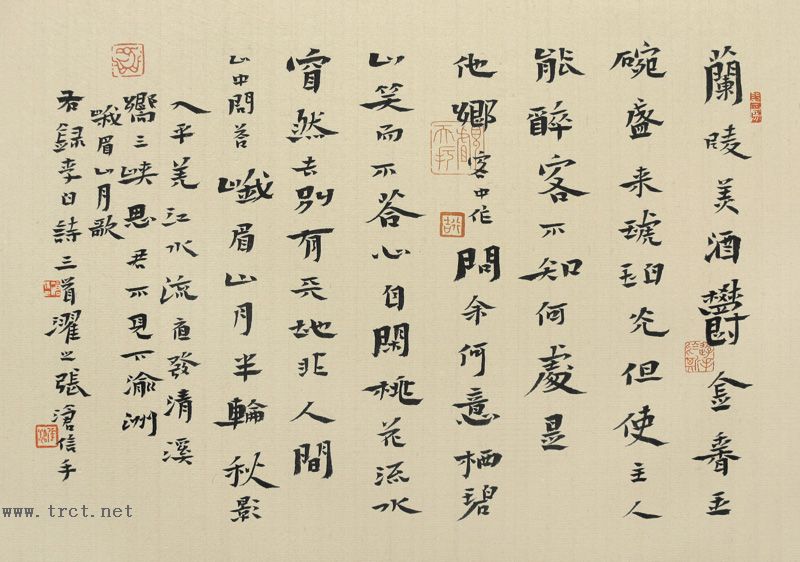 蘭陵美酒鬱金香玉
碗盛来琥珀光但使主人
能醉客不知何處是
他鄉 客中作 問余何意栖碧
山笑而不答心自閑桃花流水
窅然去別有天地非人間
山中問答 峨眉山月半輪秋影
入平羌江水流夜發清溪
嚮三峽思君不見下渝洲
峨眉山月歌
右録李白詩三首濯之張滄信手
www.trct.net